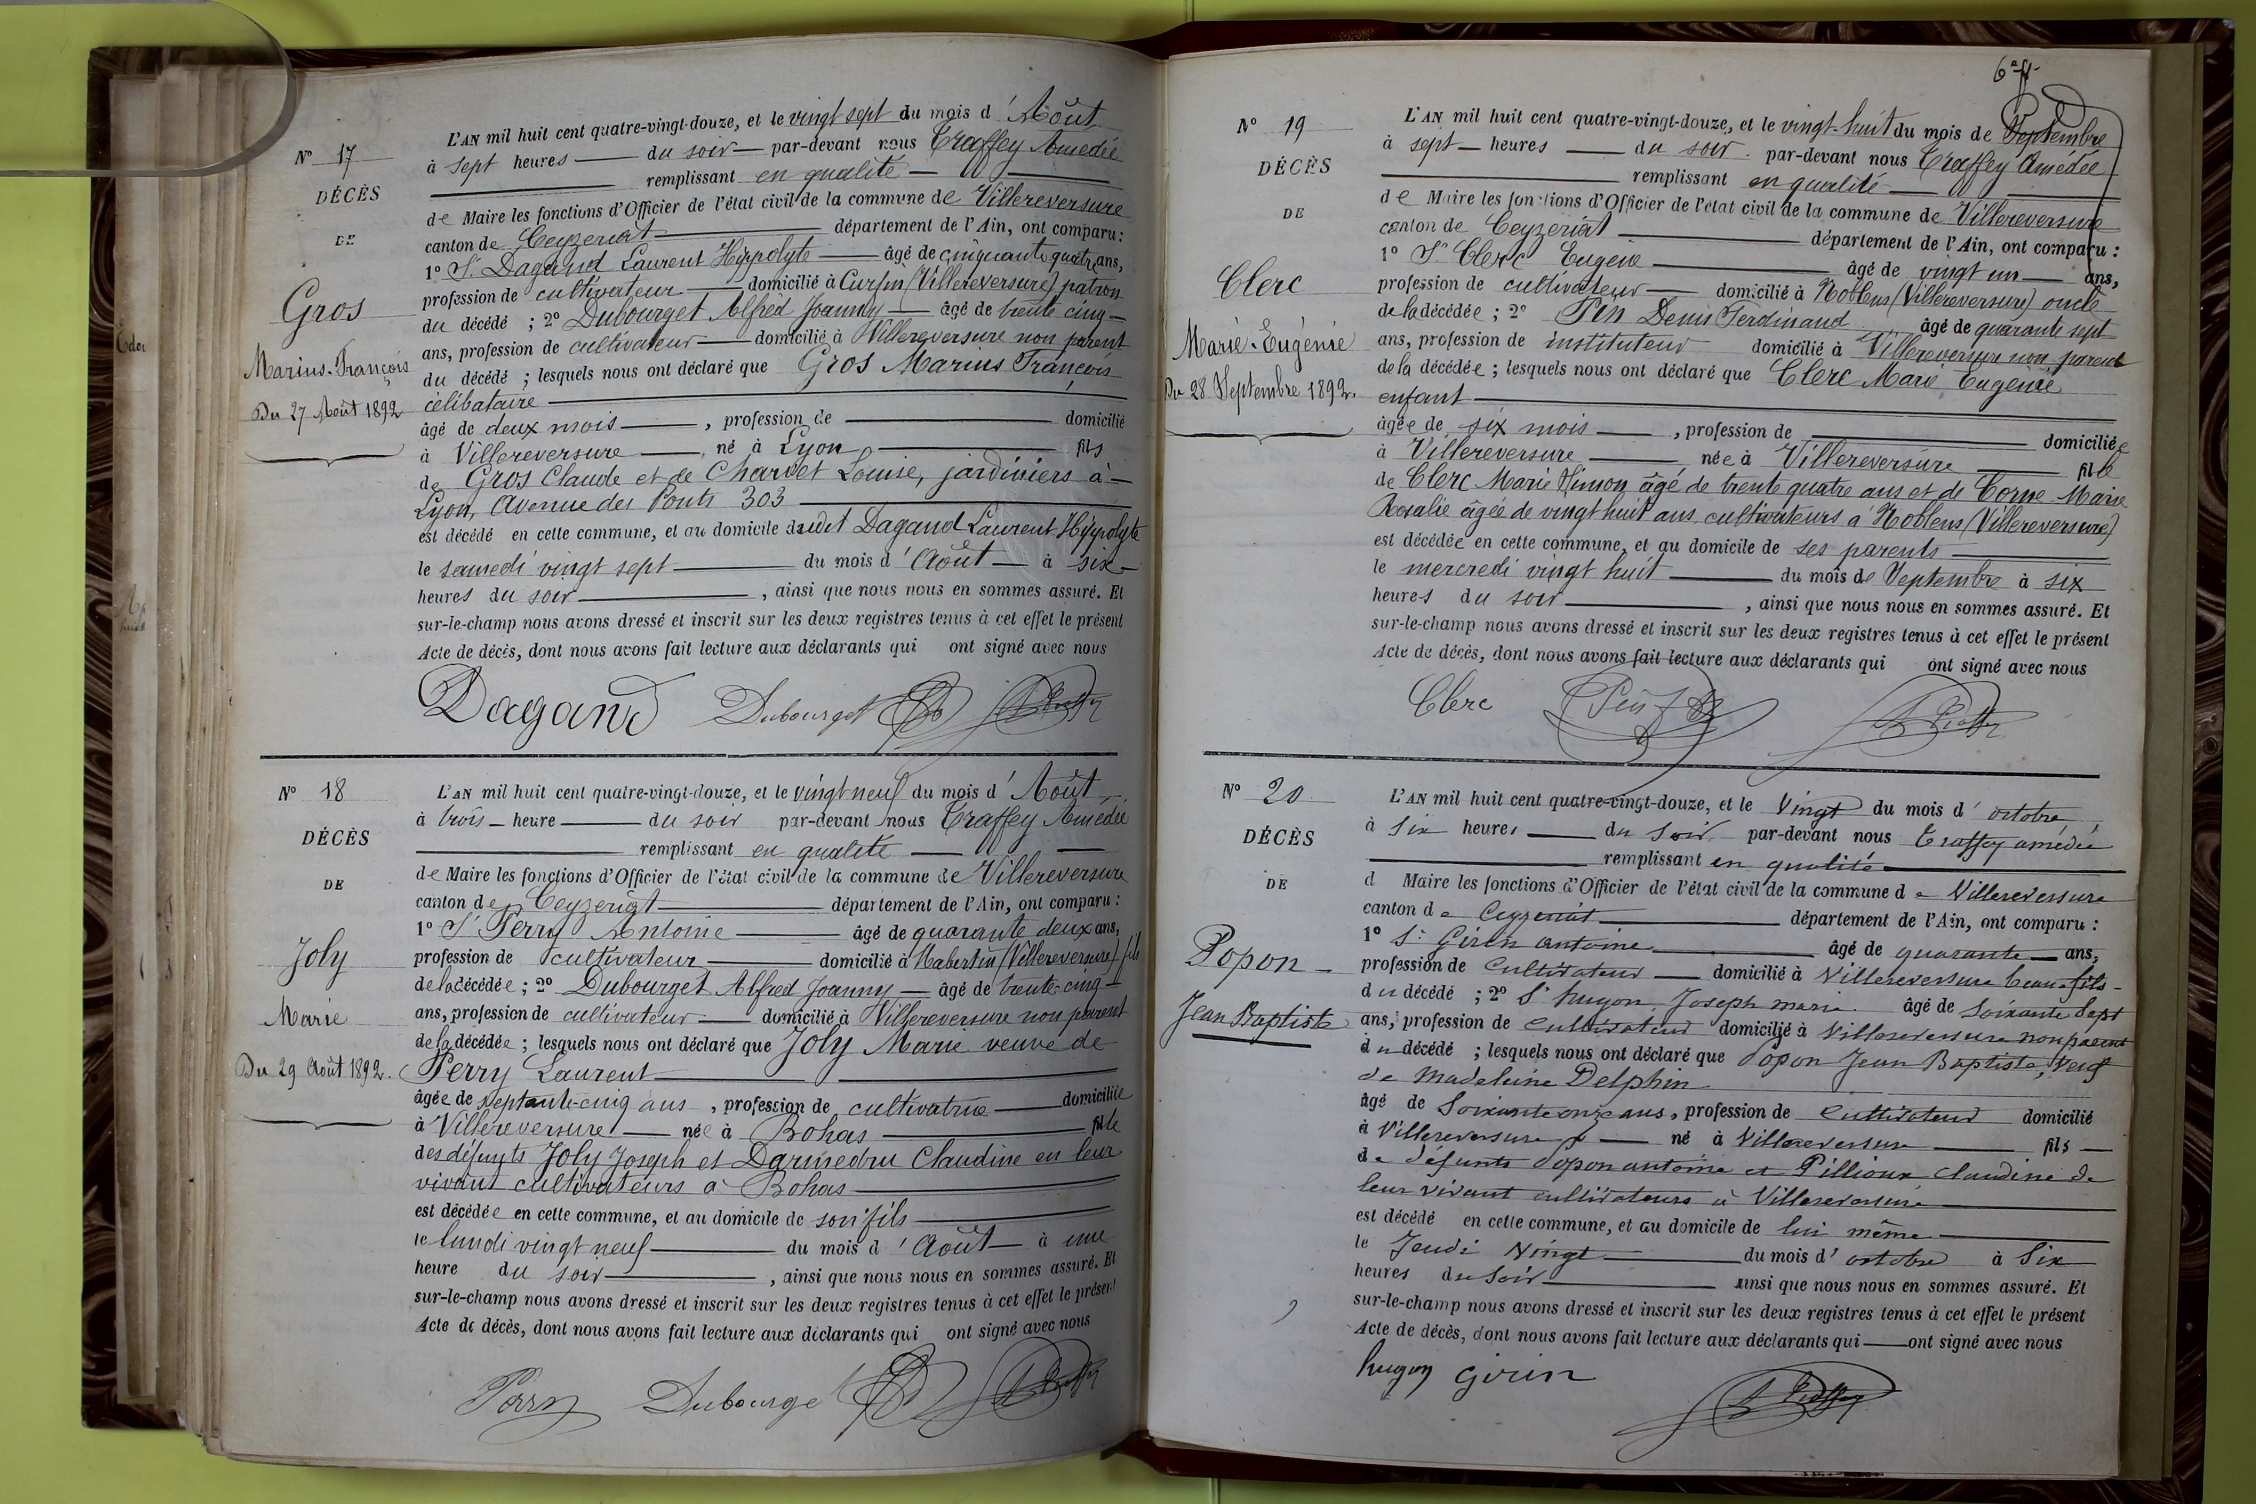 N° 17
DÉCÈS
DE
Gros
Marius-François
Du 27 Août 1892
L'AN mil huit cent quatre-vingt-douze, et le vingt sept du mois d'Août
à sept heures du soir par-devant nous Traffey Amédée
remplissant en qualité
de Maire les fonctions d'Officier de l'état civil de la commune de Villereversure
canton de Ceyzeriat département de l'Ain, ont comparu :
1° Sr Dagand Laurent Hyppolyte âgé de cinquante quatre ans,
profession de cultivateur domicilié à (Villereversure) patron
du décédé ; 2° Dubourget Alfred Joanny âgé de trente cinq
ans, profession de cultivateur domicilié à Villereversure non parent
du décédé ; lesquels nous ont déclaré que Gros Marius François
célibataire
âgé de deux mois , profession de domicilié
à Villereversure né à Lyon fils
de Gros Claude et de Charvet Louise, jardiniers à
Lyon, Avenue des Ponts 303
est décédé en cette commune, et au domicile dudit Dagand Laurent Hyppolyte
le samedi vingt sept du mois d'Août à six
heures du soir , ainsi que nous nous en sommes assuré. Et
sur-le-champ nous avons dressé et inscrit sur les deux registres tenus à cet effet le présent
Acte de décès, dont nous avons fait lecture aux déclarants qui ont signé avec nous
Dagand Dubourget
N° 18
DÉCÈS
DE
Joly
Marie
Du 29 Août 1892.
L'AN mil huit cent quatre-vingt-douze, et le vingt neuf du mois d'Août
à trois heure du soir par-devant nous Traffey Amédée
remplissant en qualité
de Maire les fonctions d'Officier de l'état civil de la commune de Villereversure
canton de Ceyzeriat département de l'Ain, ont comparu :
1° Sr Perry Antoine âgé de quarante deux ans,
profession de cultivateur domicilié à (Villereversure) fils
de la décédée ; 2° Dubourget Alfred Joanny âgé de trente-cinq
ans, profession de cultivateur domicilié à Villereversure non parent
de la décédée ; lesquels nous ont déclaré que Joly Marie veuve de
Perry Laurent
âgée de septante-cinq ans , profession de cultivatrice domiciliée
à Villereversure née à Bohas fille
des défunts Joly Joseph et Claudine en leur
vivant cultivateurs à Bohas
est décédée en cette commune, et au domicile de son fils
le lundi vingt neuf du mois d'Août à une
heure du soir , ainsi que nous nous en sommes assuré. Et
sur-le-champ nous avons dressé et inscrit sur les deux registres tenus à cet effet le présent
Acte de décès, dont nous avons fait lecture aux déclarants qui ont signé avec nous
Perry Dubourget
N° 19
DÉCÈS
DE
Clerc
Marie-Eugénie
Du 28 Septembre 1892.
L'AN mil huit cent quatre-vingt-douze, et le vingt-huit du mois de Septembre
à sept heures du soir par-devant nous Traffey Amédée
remplissant en qualité
de Maire les fonctions d'Officier de l'état civil de la commune de Villereversure
canton de Ceyzeriat département de l'Ain, ont comparu :
1° Sr Clerc Eugène âgé de vingt un ans,
profession de cultivateur domicilié à Noblens (Villereversure) oncle
de la décédée ; 2° Pin Denis Ferdinand âgé de quarante sept
ans, profession de instituteur domicilié à Villereversure non parent
de la décédée ; lesquels nous ont déclaré que Clerc Marie Eugénie
enfant
âgée de six mois , profession de domiciliée
à Villereversure née à Villereversure fille
de Clerc Marie Simon âgé de trente quatre ans et de Marie
Rosalie âgée de vingt huit ans cultivateurs à Noblens (Villereversure)
est décédée en cette commune, et au domicile de ses parents
le mercredi vingt huit du mois de Septembre à six
heures du soir , ainsi que nous nous en sommes assuré. Et
sur-le-champ nous avons dressé et inscrit sur les deux registres tenus à cet effet le présent
Acte de décès, dont nous avons fait lecture aux déclarants qui ont signé avec nous
Clerc Pin
N° 20
DÉCÈS
DE
Popon
Jean Baptiste
L'AN mil huit cent quatre-vingt-douze, et le vingt du mois d'octobre
à Six heures du soir par-devant nous Traffey amédée
remplissant en qualité
d Maire les fonctions d'Officier de l'état civil de la commune de Villereversure
canton de Ceyzeriat département de l'Ain, ont comparu :
1° Sr Girin antoine âgé de quarante ans,
profession de Cultivateur domicilié à Villereversure beau-fils
du décédé ; 2° Sr hugon Joseph marie âgé de Soixante Sept
ans, profession de Cultivateur domicilié à Villereversure non parent
du décédé ; lesquels nous ont déclaré que Popon Jean Baptiste, veuf
de Madeleine Delphin
âgé de Soixante onze ans, profession de Cultivateur domicilié
à Villereversure né à Villereversure fils
de défunts Popon antoine et Pillioux Claudine de
leur vivant cultivateurs à Villereversure
est décédé en cette commune, et au domicile de lui même
le Jeudi Vingt du mois d'octobre à Six
heures du Soir ainsi que nous nous en sommes assuré. Et
sur-le-champ nous avons dressé et inscrit sur les deux registres tenus à cet effet le présent
Acte de décès, dont nous avons fait lecture aux déclarants qui ont signé avec nous
hugon girin